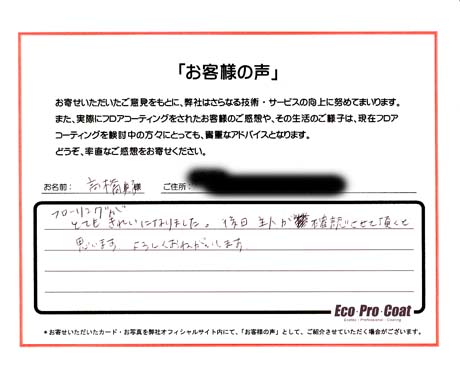 「お客様の声」
お寄せいただいたご意見をもとに、弊社はさらなる技術・サービスの向上に努めてまいります。
また、実際にフロアコーティングをされたお客様のご感想や、その生活のご様子は、現在フロア
コーティングを検討中の方々にとっても、貴重なアドバイスとなります。
どうぞ、率直なご感想をお寄せください。
お名前： 高橋 様 ご住所：
フローリングが
とてもきれいになりました。後日主人が確認させて頂くと
思います よろしくおねがいします
Eco・Pro・Coat
Ecoflex / Professional Coating
＊お寄せいただいたカード・お写真を弊社オフィシャルサイト内にて、「お客様の声」として、ご紹介させていただく場合がございます。